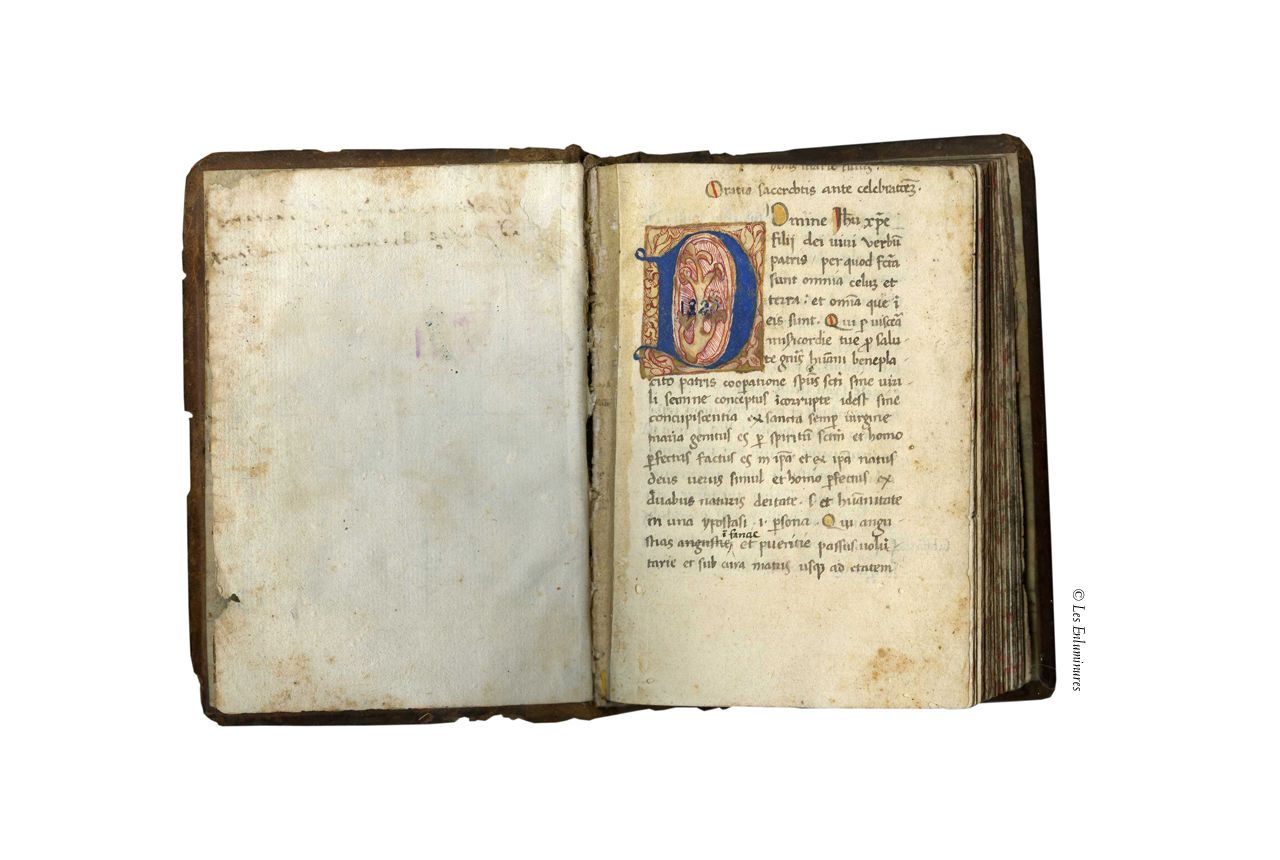 Oratio sacerdotis ante celebratōeʒ.
Domine Jhū xp̄e
filij dei uiui verbū
patris / per quod fctā
sunt omnia celuʒ et
terra: et omīa que ī
eis sunt. Qui p uiscēa
misericordie tue p salu
te gnīs huāni benepla
cito patris cooperatione spūs scti sine uiri-
li semine conceptus icorrupte idest sine
concupiscentia ex sancta semp uirgine
maria genitus es p spiritū sctm et homo
perfectus factus es in ipā et ex ipā natus
deus uerus simul et homo perfectus ex
duabus naturis deitate .s. et huānitate
in una ypostasi .i. persona. Qui angu-
ifantie
stias angustie, et pueritie passus volū
tarie et sub cura matris usqꝫ ad etatem
1327
© Les Enluminures